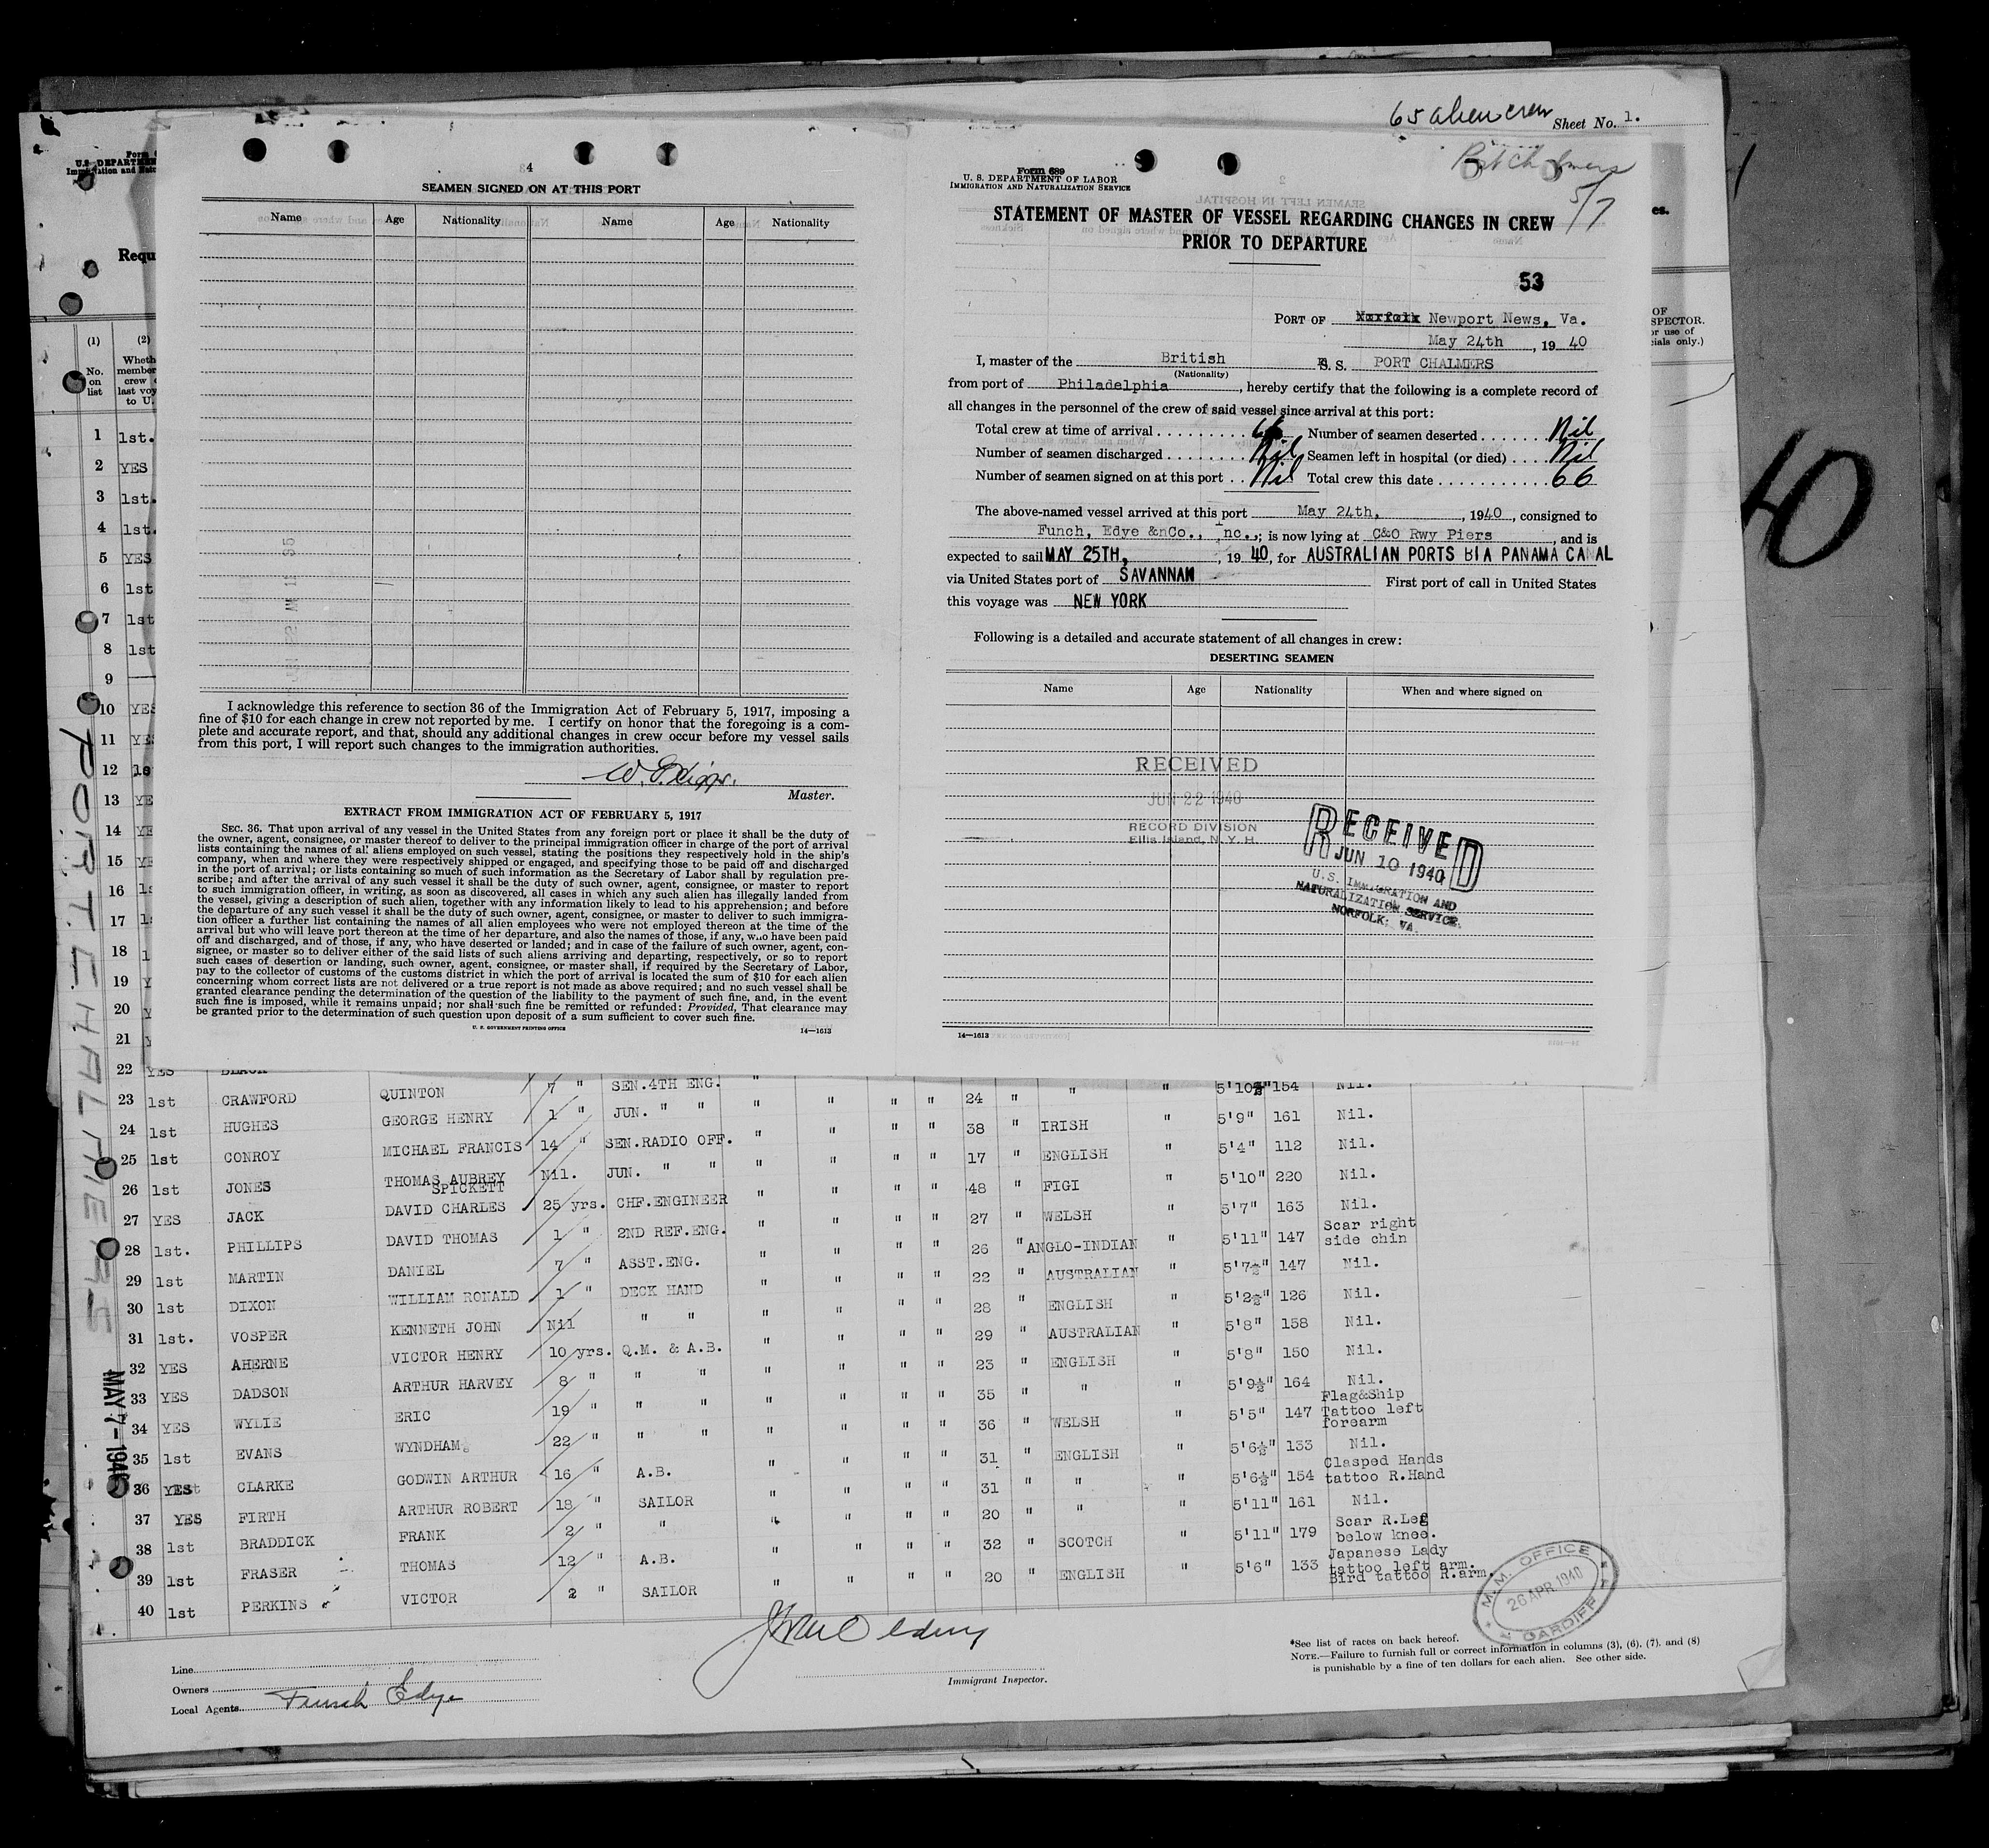 65 alien crew Sheet No. 1.
Port Chalmers
5/7
U.S. DEPARTMENT
Requ
4
SEAMEN SIGNED ON AT THIS PORT
Name Age Nationality Name Age Nationality
I acknowledge this reference to section 36 of the Immigration Act of February 5, 1917, imposing a
fine of $10 for each change in crew not reported by me. I certify on honor that the foregoing is a com-
plete and accurate report, and that, should any additional changes in crew occur before my vessel sails
from this port, I will report such changes to the immigration authorities.
Master.
EXTRACT FROM IMMIGRATION ACT OF FEBRUARY 5, 1917
SEC. 36. That upon arrival of any vessel in the United States from any foreign port or place it shall be the duty of
the owner, agent, consignee, or master thereof to deliver to the principal immigration officer in charge of the port of arrival
lists containing the names of all aliens employed on such vessel, stating the positions they respectively hold in the ship's
company, when and where they were respectively shipped or engaged, and specifying those to be paid off and discharged
in the port of arrival; or lists containing so much of such information as the Secretary of Labor shall by regulation pre-
scribe; and after the arrival of any such vessel it shall be the duty of such owner, agent, consignee, or master to report
to such immigration officer, in writing, as soon as discovered, all cases in which any such alien has illegally landed from
the vessel, giving a description of such alien, together with any information likely to lead to his apprehension; and before
the departure of any such vessel it shall be the duty of such owner, agent, consignee, or master to deliver to such immigra-
tion officer a further list containing the names of all alien employees who were not employed thereon at the time of the
arrival but who will leave port thereon at the time of her departure, and also the names of those, if any, who have been paid
off and discharged, and of those, if any, who have deserted or landed; and in case of the failure of such owner, agent, con-
signee, or master so to deliver either of the said lists of such aliens arriving and departing, respectively, or so to report
such cases of desertion or landing, such owner, agent, consignee, or master shall, if required by the Secretary of Labor,
pay to the collector of customs of the customs district in which the port of arrival is located the sum of $10 for each alien
concerning whom correct lists are not delivered or a true report is not made as above required; and no such vessel shall be
granted clearance pending the determination of the question of the liability to the payment of such fine, and, in the event
such fine is imposed, while it remains unpaid; nor shall such fine be remitted or refunded: Provided, That clearance may
be granted prior to the determination of such question upon deposit of a sum sufficient to cover such fine.
U. S. GOVERNMENT PRINTING OFFICE 14—1613
Form 689
U. S. DEPARTMENT OF LABOR
IMMIGRATION AND NATURALIZATION SERVICE
STATEMENT OF MASTER OF VESSEL REGARDING CHANGES IN CREW
PRIOR TO DEPARTURE
53
PORT OF Norfolk Newport News, Va.
May 24th, 1940
I, master of the British S. S. PORT CHALMERS
(Nationality)
from port of Philadelphia, hereby certify that the following is a complete record of
all changes in the personnel of the crew of said vessel since arrival at this port:
Total crew at time of arrival 66 Number of seamen deserted Nil
Number of seamen discharged Nil Seamen left in hospital (or died) Nil
Number of seamen signed on at this port Nil Total crew this date 66
The above-named vessel arrived at this port May 24th, 1940, consigned to
Funch, Edye &nCo., Inc.,; is now lying at C&O Rwy Piers, and is
expected to sail MAY 25TH, 1940, for AUSTRALIAN PORTS BIA PANAMA CANAL
via United States port of SAVANNAH First port of call in United States
this voyage was NEW YORK
Following is a detailed and accurate statement of all changes in crew:
DESERTING SEAMEN
Name Age Nationality When and where signed on
RECEIVED
JUN 22 1940
RECORD DIVISION
Ellis Island, N. Y. H.
RECEIVED
JUN 10 1940
U.S. IMMIGRATION AND
NATURALIZATION SERVICE
NORFOLK, VA.
14—1613
40
(1) (2)
No. on list
1 1st.
2 YES
3 1st.
4 1st.
5 YES
6 1st
7 1st
8 1st
9
10 YES
11 YES
12 1s
13 YE
14 YE
15 YE
16 1s
17 1s
18 1
19 Y
20 Y
21 Y
22 YES BLACK
23 1st CRAWFORD QUINTON 7 " SEN.4TH ENG. " " " " 24 " " " 5'10½" 154 Nil.
24 1st HUGHES GEORGE HENRY 1 " JUN. " " " " " " 38 " IRISH " 5'9" 161 Nil.
25 1st CONROY MICHAEL FRANCIS 14 " SEN.RADIO OFF. " " " " 17 " ENGLISH " 5'4" 112 Nil.
26 1st JONES THOMAS AUBREY SPICKETT Nil. JUN. " " " " " " 48 " FIGI " 5'10" 220 Nil.
27 YES JACK DAVID CHARLES 25 yrs. CHF.ENGINEER " " " " 27 " WELSH " 5'7" 163 Nil.
28 1st. PHILLIPS DAVID THOMAS 1 " 2ND REF.ENG. " " " " 26 " ANGLO-INDIAN " 5'11" 147 Scar right side chin
29 1st MARTIN DANIEL 7 " ASST.ENG. " " " " 22 " AUSTRALIAN " 5'7½" 147 Nil.
30 1st DIXON WILLIAM RONALD 1 " DECK HAND " " " " 28 " ENGLISH " 5'2½" 126 Nil.
31 1st. VOSPER KENNETH JOHN Nil " " " " " " 29 " AUSTRALIAN " 5'8" 158 Nil.
32 YES AHERNE VICTOR HENRY 10 yrs. Q.M. & A.B. " " " " 23 " ENGLISH " 5'8" 150 Nil.
33 YES DADSON ARTHUR HARVEY 8 " " " " " " " 35 " " " 5'9½" 164 Nil.
34 YES WYLIE ERIC 19 " " " " " " " 36 " WELSH " 5'5" 147 Flag&Ship Tattoo left forearm
35 1st EVANS WYNDHAM 22 " " " " " " " 31 " ENGLISH " 5'6½" 133 Nil.
36 YES CLARKE GODWIN ARTHUR 16 " A.B. " " " " 31 " " " 5'6½" 154 Clasped Hands tattoo R.Hand
37 YES FIRTH ARTHUR ROBERT 18 " SAILOR " " " " 20 " " " 5'11" 161 Nil.
38 1st BRADDICK FRANK 2 " " " " " " 32 " SCOTCH " 5'11" 179 Scar R.Leg below knee.
39 1st FRASER THOMAS 12 " A.B. " " " " 20 " ENGLISH " 5'6" 133 Japanese Lady tattoo left arm. Bird tattoo R.arm.
40 1st PERKINS VICTOR 2 " SAILOR " " " "
PORT CHALMERS
MAY 7 - 1940
M.M. OFFICE
26 APR 1940
CARDIFF
Line
Owners
Local Agents Funch Edye
Immigrant Inspector.
*See list of races on back hereof.
NOTE.—Failure to furnish full or correct information in columns (3), (6), (7), and (8)
is punishable by a fine of ten dollars for each alien. See other side.